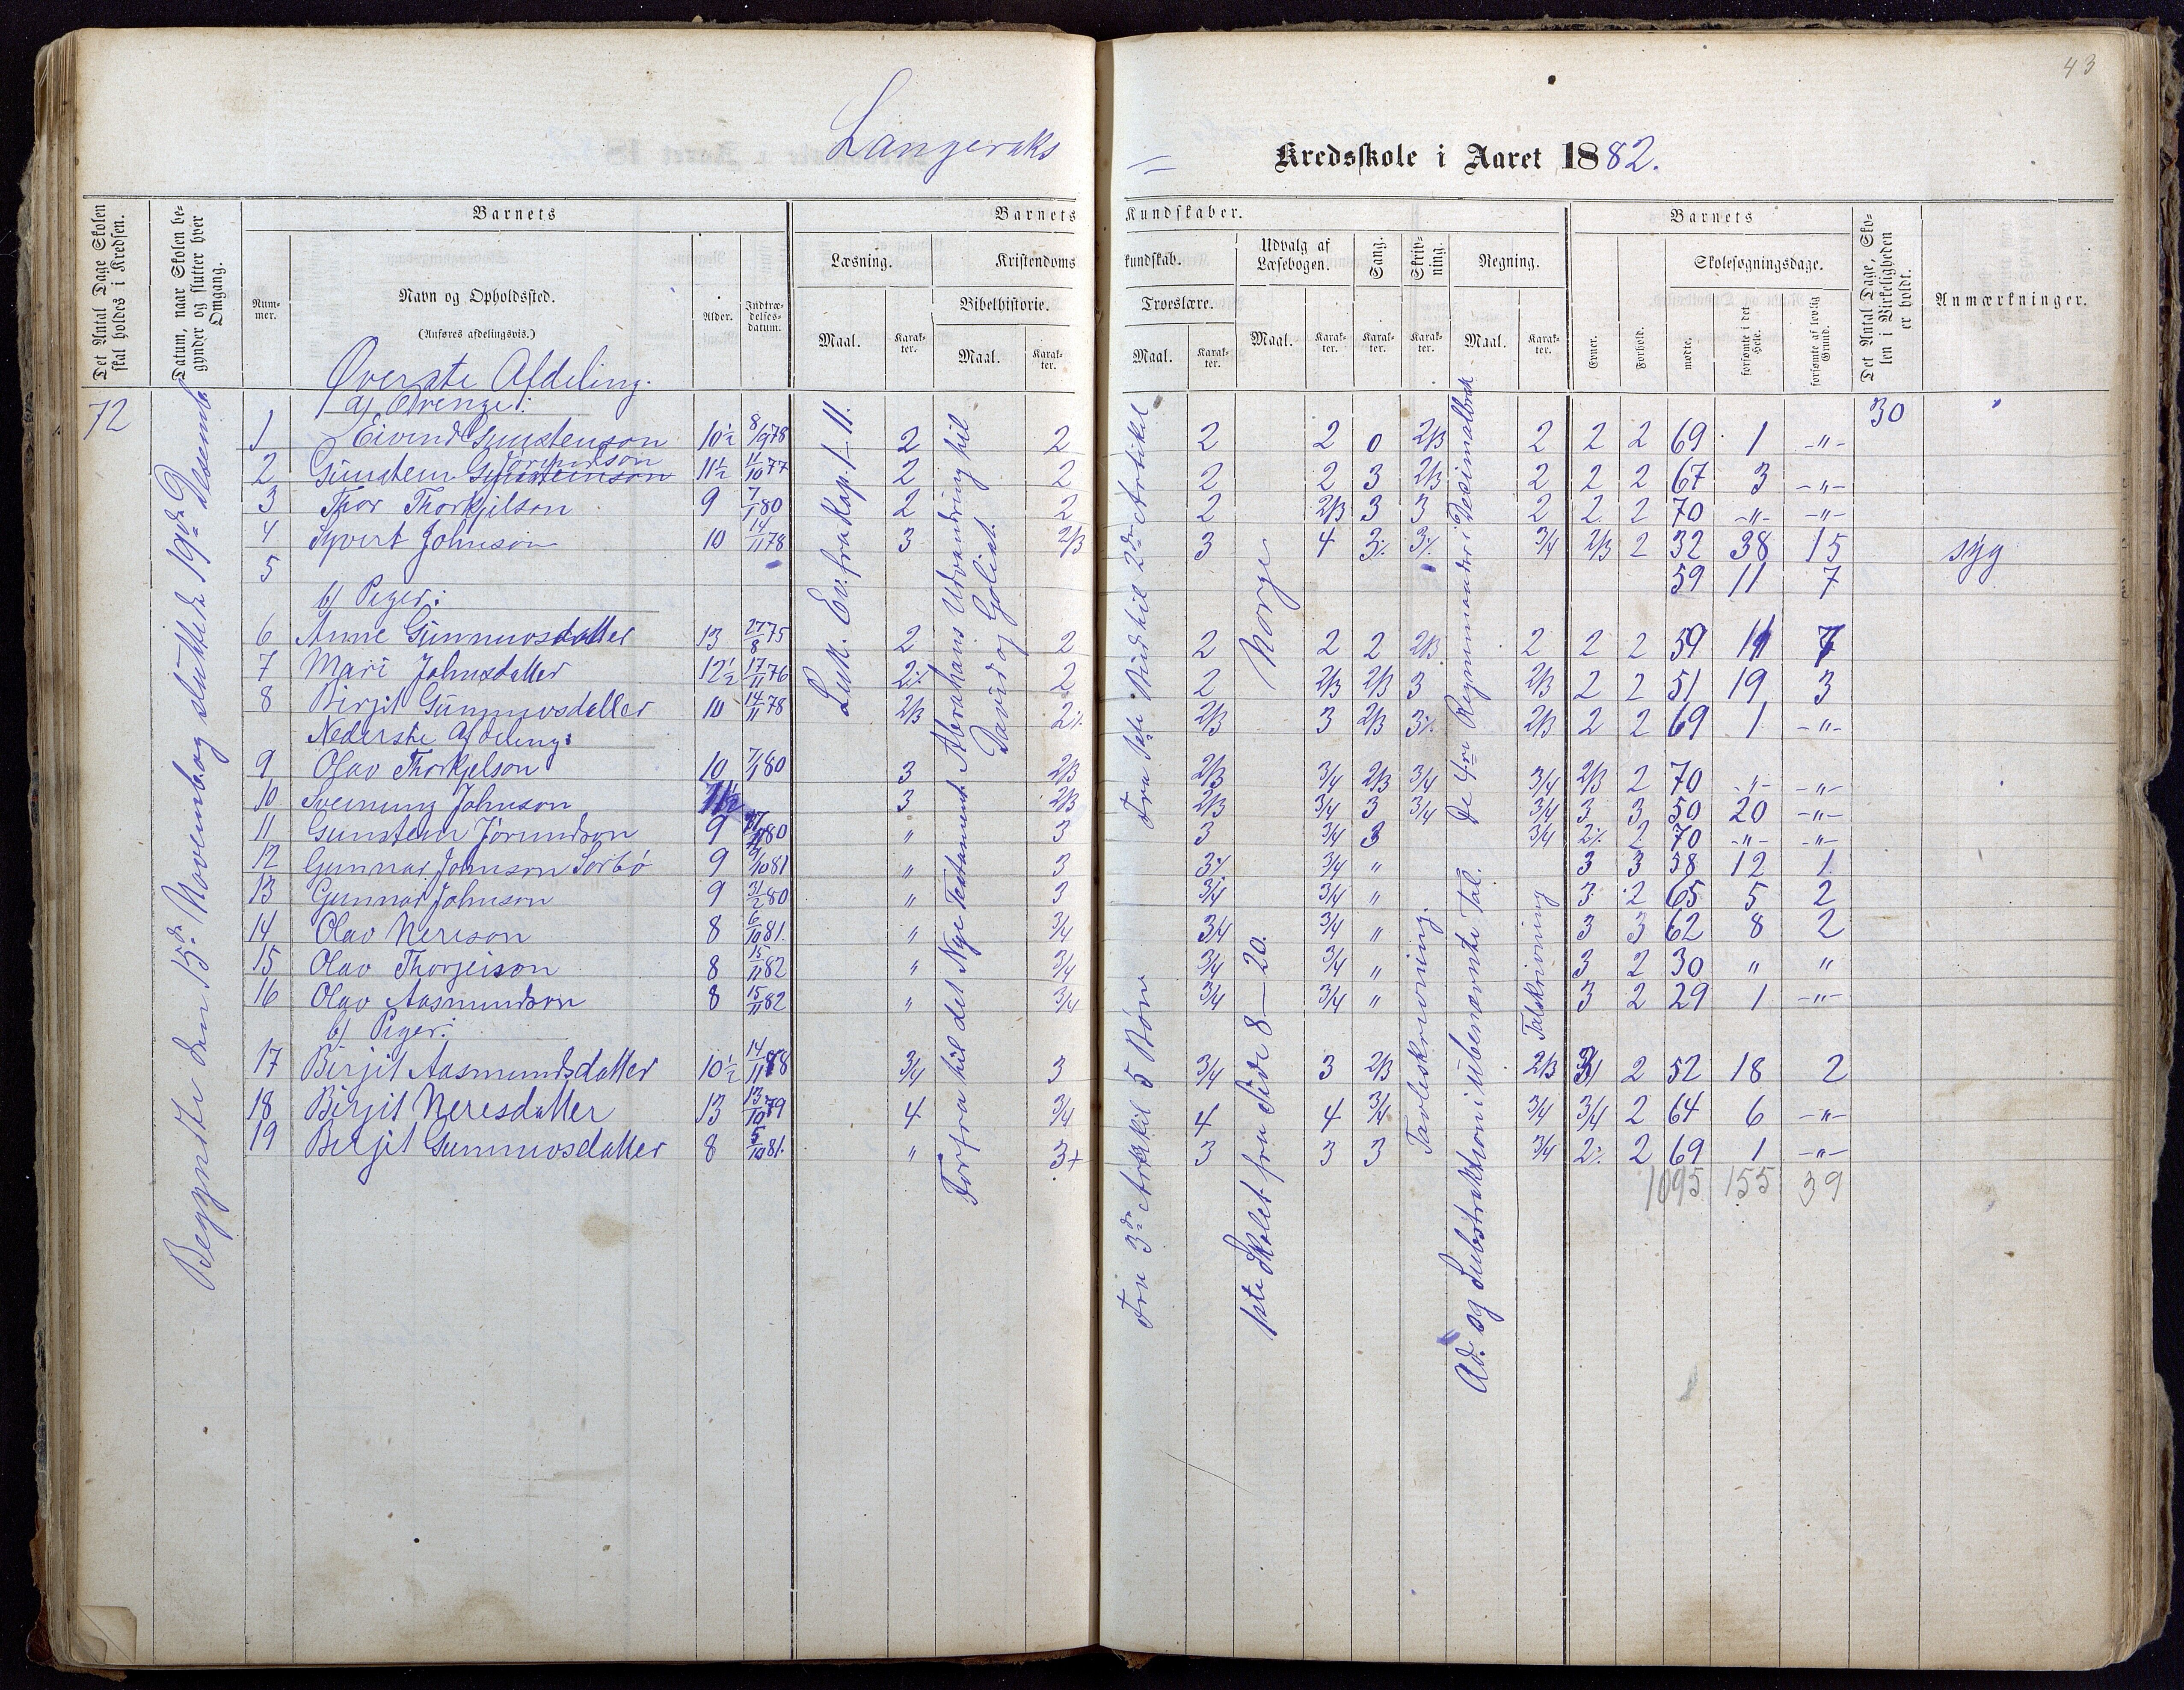 43
Langeraks Kredsskole i Aaret 1882.
Det Antal Dage Skolen skal holdes i Kredsen.
Datum, naar Skolen begynder og slutter hver Omgang.
Barnets
Nummer.
Navn og Opholdssted.
(Anføres afdelingsvis.)
Alder.
Indtrædelsesdatum.
Barnets Kundskaber.
Læsning.
Maal.
Karakter.
Kristendomskundskab.
Bibelhistorie.
Maal.
Karakter.
Troeslære.
Maal.
Karakter.
Udvalg af Læsebogen.
Maal.
Karakter.
Sang.
Karakter.
Skrivning.
Karakter.
Regning.
Maal.
Karakter.
Barnets
Evner.
Forhold.
Skolesøgningsdage.
mødte.
forsømte i det Hele.
forsømte af lovlig Grund.
Det Antal Dage, Skolen i Virkeligheden er holdt.
Anmærkninger.
72
30
Begyndte den 15de Novemb. og sluttede 19de Desemb.
Luk. Ev. fra Kap. 1–11.
Abrahams Udvandring til
David og Goliat.
Forfra til det Nye Testament
Fra 1ste Bud til 2den Artikel
Fra 3de Artikel 5 Bønn
Norge
1ste Skolet fra Side 8–20.
Tavleskrivning.
De 4re Regnemaader i Desimalbrøk
Ad. og Substraktion i ubenævnte Tal.
Talskrivning
Øverste Afdeling.
a) Drenge:
1 Eivind Gunstenson 10½ 8/9 78 2 2 2 2 0 2/3 2 2 2 69 1 -"-
2 Gunstein Gunsteinson Jörundson 11½ 11/10 77 2 2 2 2 3 2/3 2 2 2 67 3 -"-
3 Thor Thorkjelson 9 7/1 80 2 2 2 2/3 3 3 2 2 2 70 -"- -"-
4 Syvert Johnson 10 14/11 78 3 2/3 3 4 3% 3% 3/4 2/3 2 32 38 15 syg
5 59 11 7
b) Piger:
6 Anne Gunnuvsdatter 13 27/8 75 2 2 2 2 2 2/3 2 2 2 59 11 7
7 Mari Johnsdatter 12½ 17/11 76 2% 2 2 2/3 2/3 3 2/3 2 2 51 19 3
8 Birgit Gunnuvsdatter 10 14/11 78 2/3 2% 2/3 3 2/3 3% 2/3 2 2 69 1 -"-
Nederste Afdeling:
9 Olav Thorkjelson 10 7/1 80 3 2/3 2/3 3/4 2/3 3/4 3/4 2/3 2 70 -"- -"-
10 Sveinung Johnson 11½ 3 2/3 2/3 3/4 3 3/4 3/4 3 3 50 20 -"-
11 Gunstein Jörundson 9 80 " 3 3 3/4 3 3/4 2% 2 70 -"- -"-
12 Gunnar Johnson Sorbö 9 9/10 81 " 3 3% 3/4 " 3 3 58 12 1
13 Gunnar Johnson 9 31/2 80 " 3 3/4 3/4 " 3 2 65 5 2
14 Olav Nereson 8 6/10 81. " 3/4 3/4 3/4 " 3 3 62 8 2
15 Olav Thorgeison 8 15/11 82 " 3/4 3/4 3/4 " 3 2 30 " "
16 Olav Aasmundson 8 15/11 82 " 3/4 3/4 3/4 " 3 2 29 1 -"-
b) Piger:
17 Birjit Aasmundsdatter 10½ 14/11 78 3/4 3 3/4 3 2/3 2/3 3 2 52 18 2
18 Birjit Neresdatter 13 13/10 79 4 3/4 4 4 3/4 3/4 3/4 2 64 6 -"-
19 Birjit Gunnuvsdatter 8 5/10 81. " 3+ 3 3 3 3/4 2% 2 69 1 -"-
1095 155 39